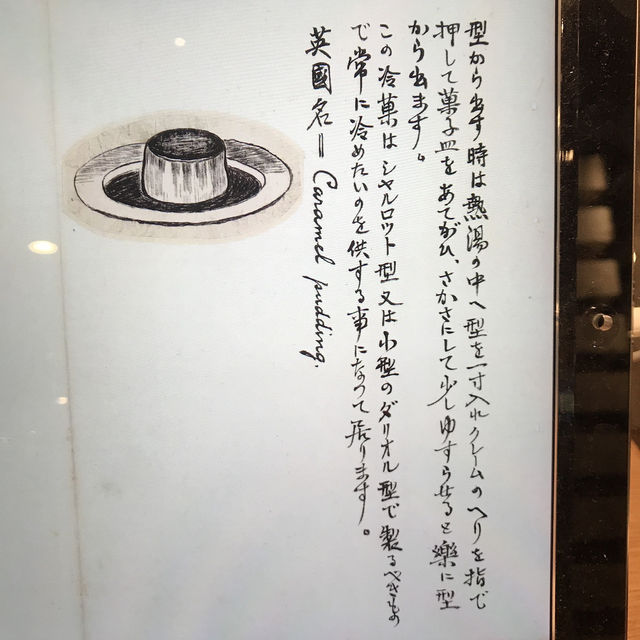 型から出す時は熱湯の中へ型を一寸入れクレムのヘリを指で
押して菓子皿をあてがひ、さかさにして少しゆすらせると樂に型
から出ます。
この冷菓は シャルロット型又は小型のダリオル型で製るべきもの
で常に冷めたいのを供する事になつて居ります。
英國名＝Caramel pudding.